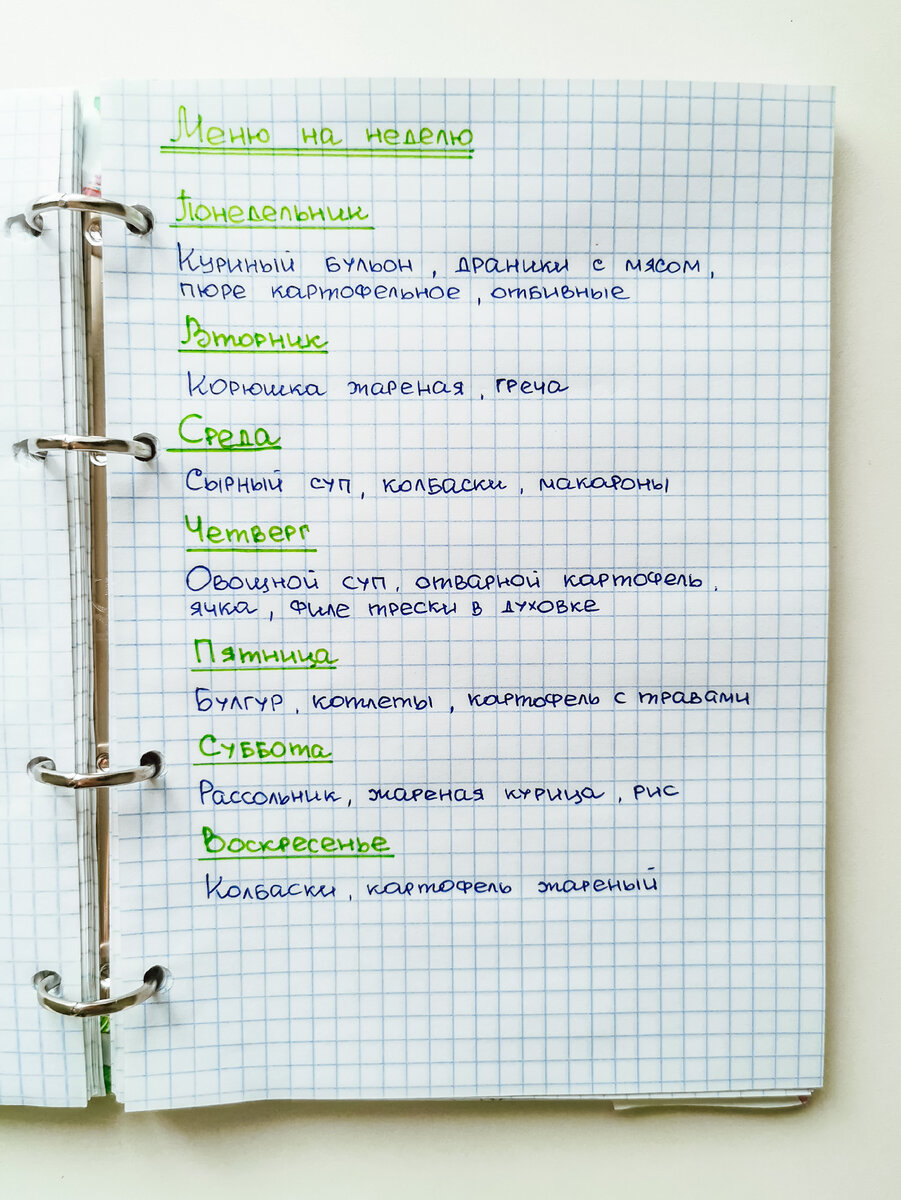 Меню на неделю
Понедельник
Куриный бульон, драники с мясом,
пюре картофельное, отбивные
Вторник
Корюшка жареная, греча
Среда
Сырный суп, колбаски, макароны
Четверг
Овощной суп, отварной картофель,
ячка, филе трески в духовке
Пятница
Булгур, котлеты, картофель с травами
Суббота
Рассольник, жареная курица, рис
Воскресенье
Колбаски, картофель жареный